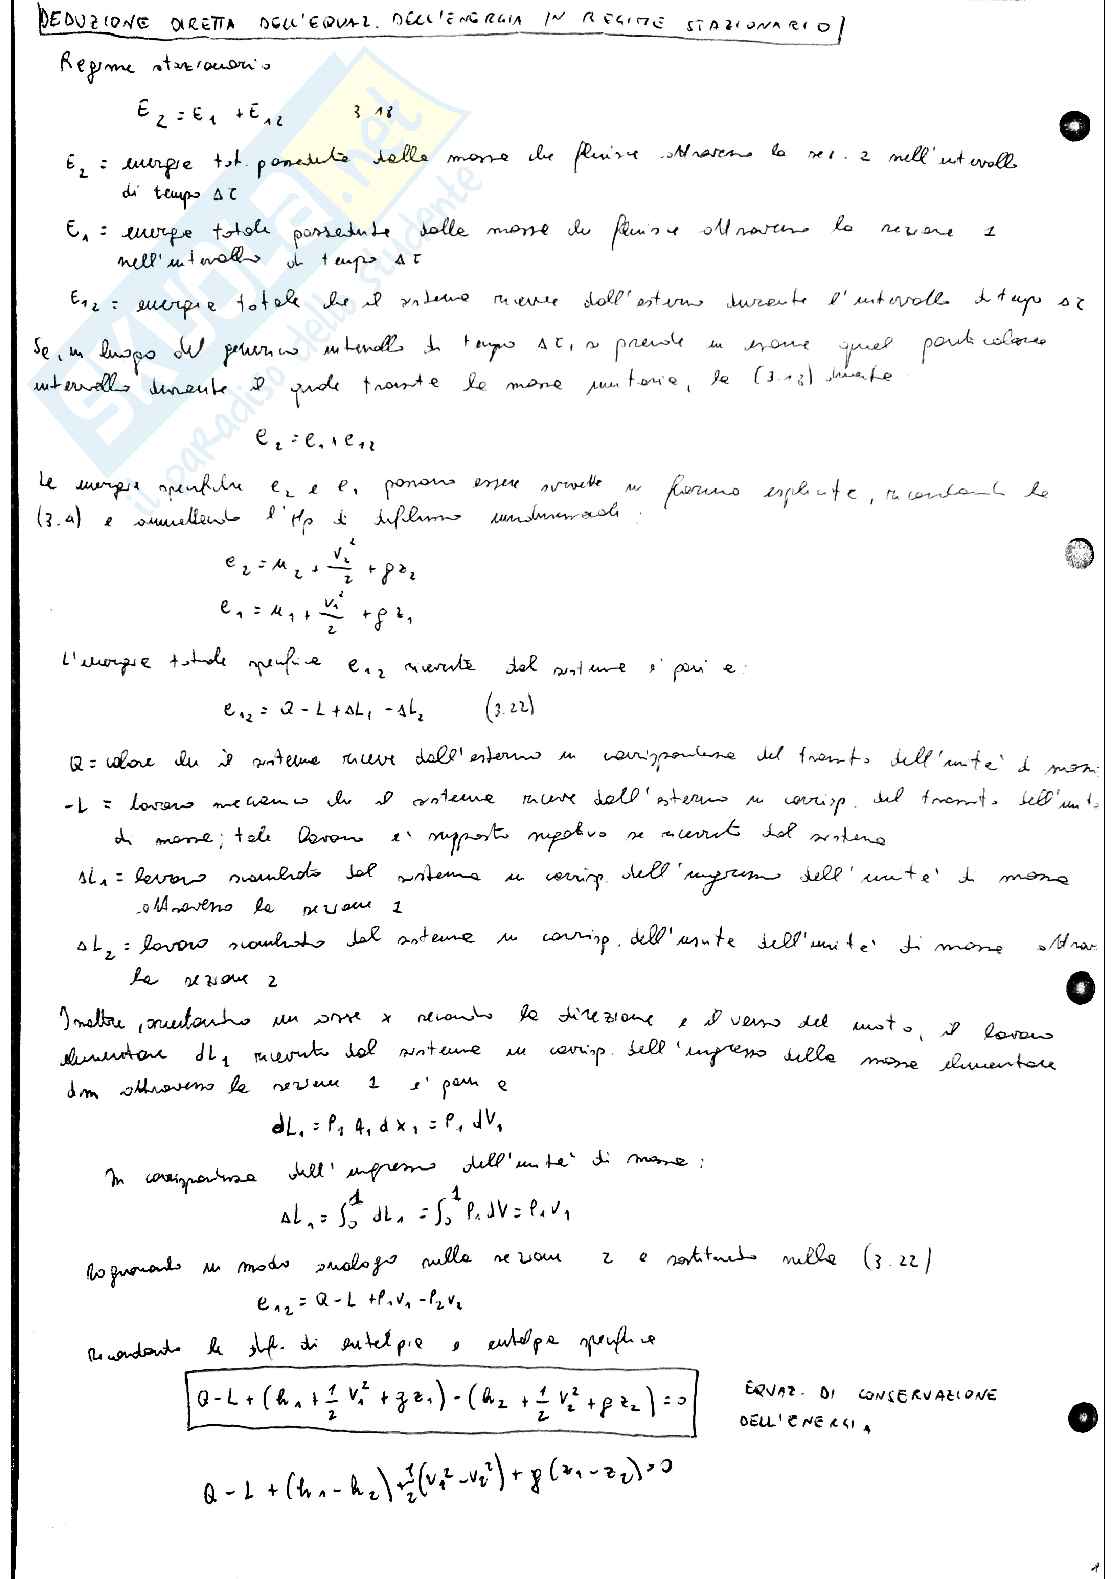 DEDUZIONE DIRETTA DELL'EQUAZ. DELL'ENERGIA IN REGIME STAZIONARIO
Regime stazionario
E₂ = E₁ + E₁₂ 3.18
E₂ = energia tot. posseduta dalla massa che fluisce attraverso la sez. 2 nell'intervallo
di tempo Δτ
E₁ = energia totale posseduta dalla massa che fluisce attraverso la sezione 1
nell'intervallo di tempo Δτ
E₁₂ = energia totale che il sistema riceve dall'esterno durante l'intervallo di tempo Δτ
Se, in luogo del generico intervallo di tempo Δτ, si prende in esame quel particolare
intervallo durante il quale transita la massa unitaria, la (3.18) diventa
e₂ = e₁ + e₁₂
Le energie specifiche e₂ e e₁ possono essere scritte in forma esplicita, ricordando la
(3.4) e ammettendo l'Hp di deflusso unidimensionale:
e₂ = u₂ + v₂²/2 + g z₂
e₁ = u₁ + v₁²/2 + g z₁
L'energia totale specifica e₁₂ ricevuta dal sistema è pari a:
e₁₂ = Q - L + ΔL₁ - ΔL₂ (3.22)
Q = calore che il sistema riceve dall'esterno in corrispondenza del transito dell'unità di massa
-L = lavoro meccanico che il sistema riceve dall'esterno in corrisp. del transito dell'unità
di massa; tale lavoro è supposto negativo se ricevuto dal sistema
ΔL₁ = lavoro scambiato dal sistema in corrisp. dell'ingresso dell'unità di massa
attraverso la sezione 1
ΔL₂ = lavoro scambiato dal sistema in corrisp. dell'uscita dell'unità di massa attrav
la sezione 2
Inoltre, orientando un asse x secondo la direzione e il verso del moto, il lavoro
elementare dL₁ ricevuto dal sistema in corrisp. dell'ingresso della massa elementare
dm attraverso la sezione 1 è pari a
dL₁ = P₁ A₁ dx₁ = P₁ dV₁
In corrispondenza dell'ingresso dell'unità di massa:
ΔL₁ = ∫₀¹ dL₁ = ∫₀¹ P₁ dV = P₁ v₁
Ragionando in modo analogo nella sezione 2 e sostituendo nella (3.22)
e₁₂ = Q - L + P₁v₁ - P₂v₂
Ricordando la def. di entalpia e entalpia specifica
Q - L + (h₁ + 1/2 v₁² + g z₁) - (h₂ + 1/2 v₂² + g z₂) = 0
EQUAZ. DI CONSERVAZIONE
DELL'ENERGIA
Q - L + (h₁ - h₂) + 1/2 (v₁² - v₂²) + g (z₁ - z₂) = 0
1
SKUOLA.net
il paradiso dello studente